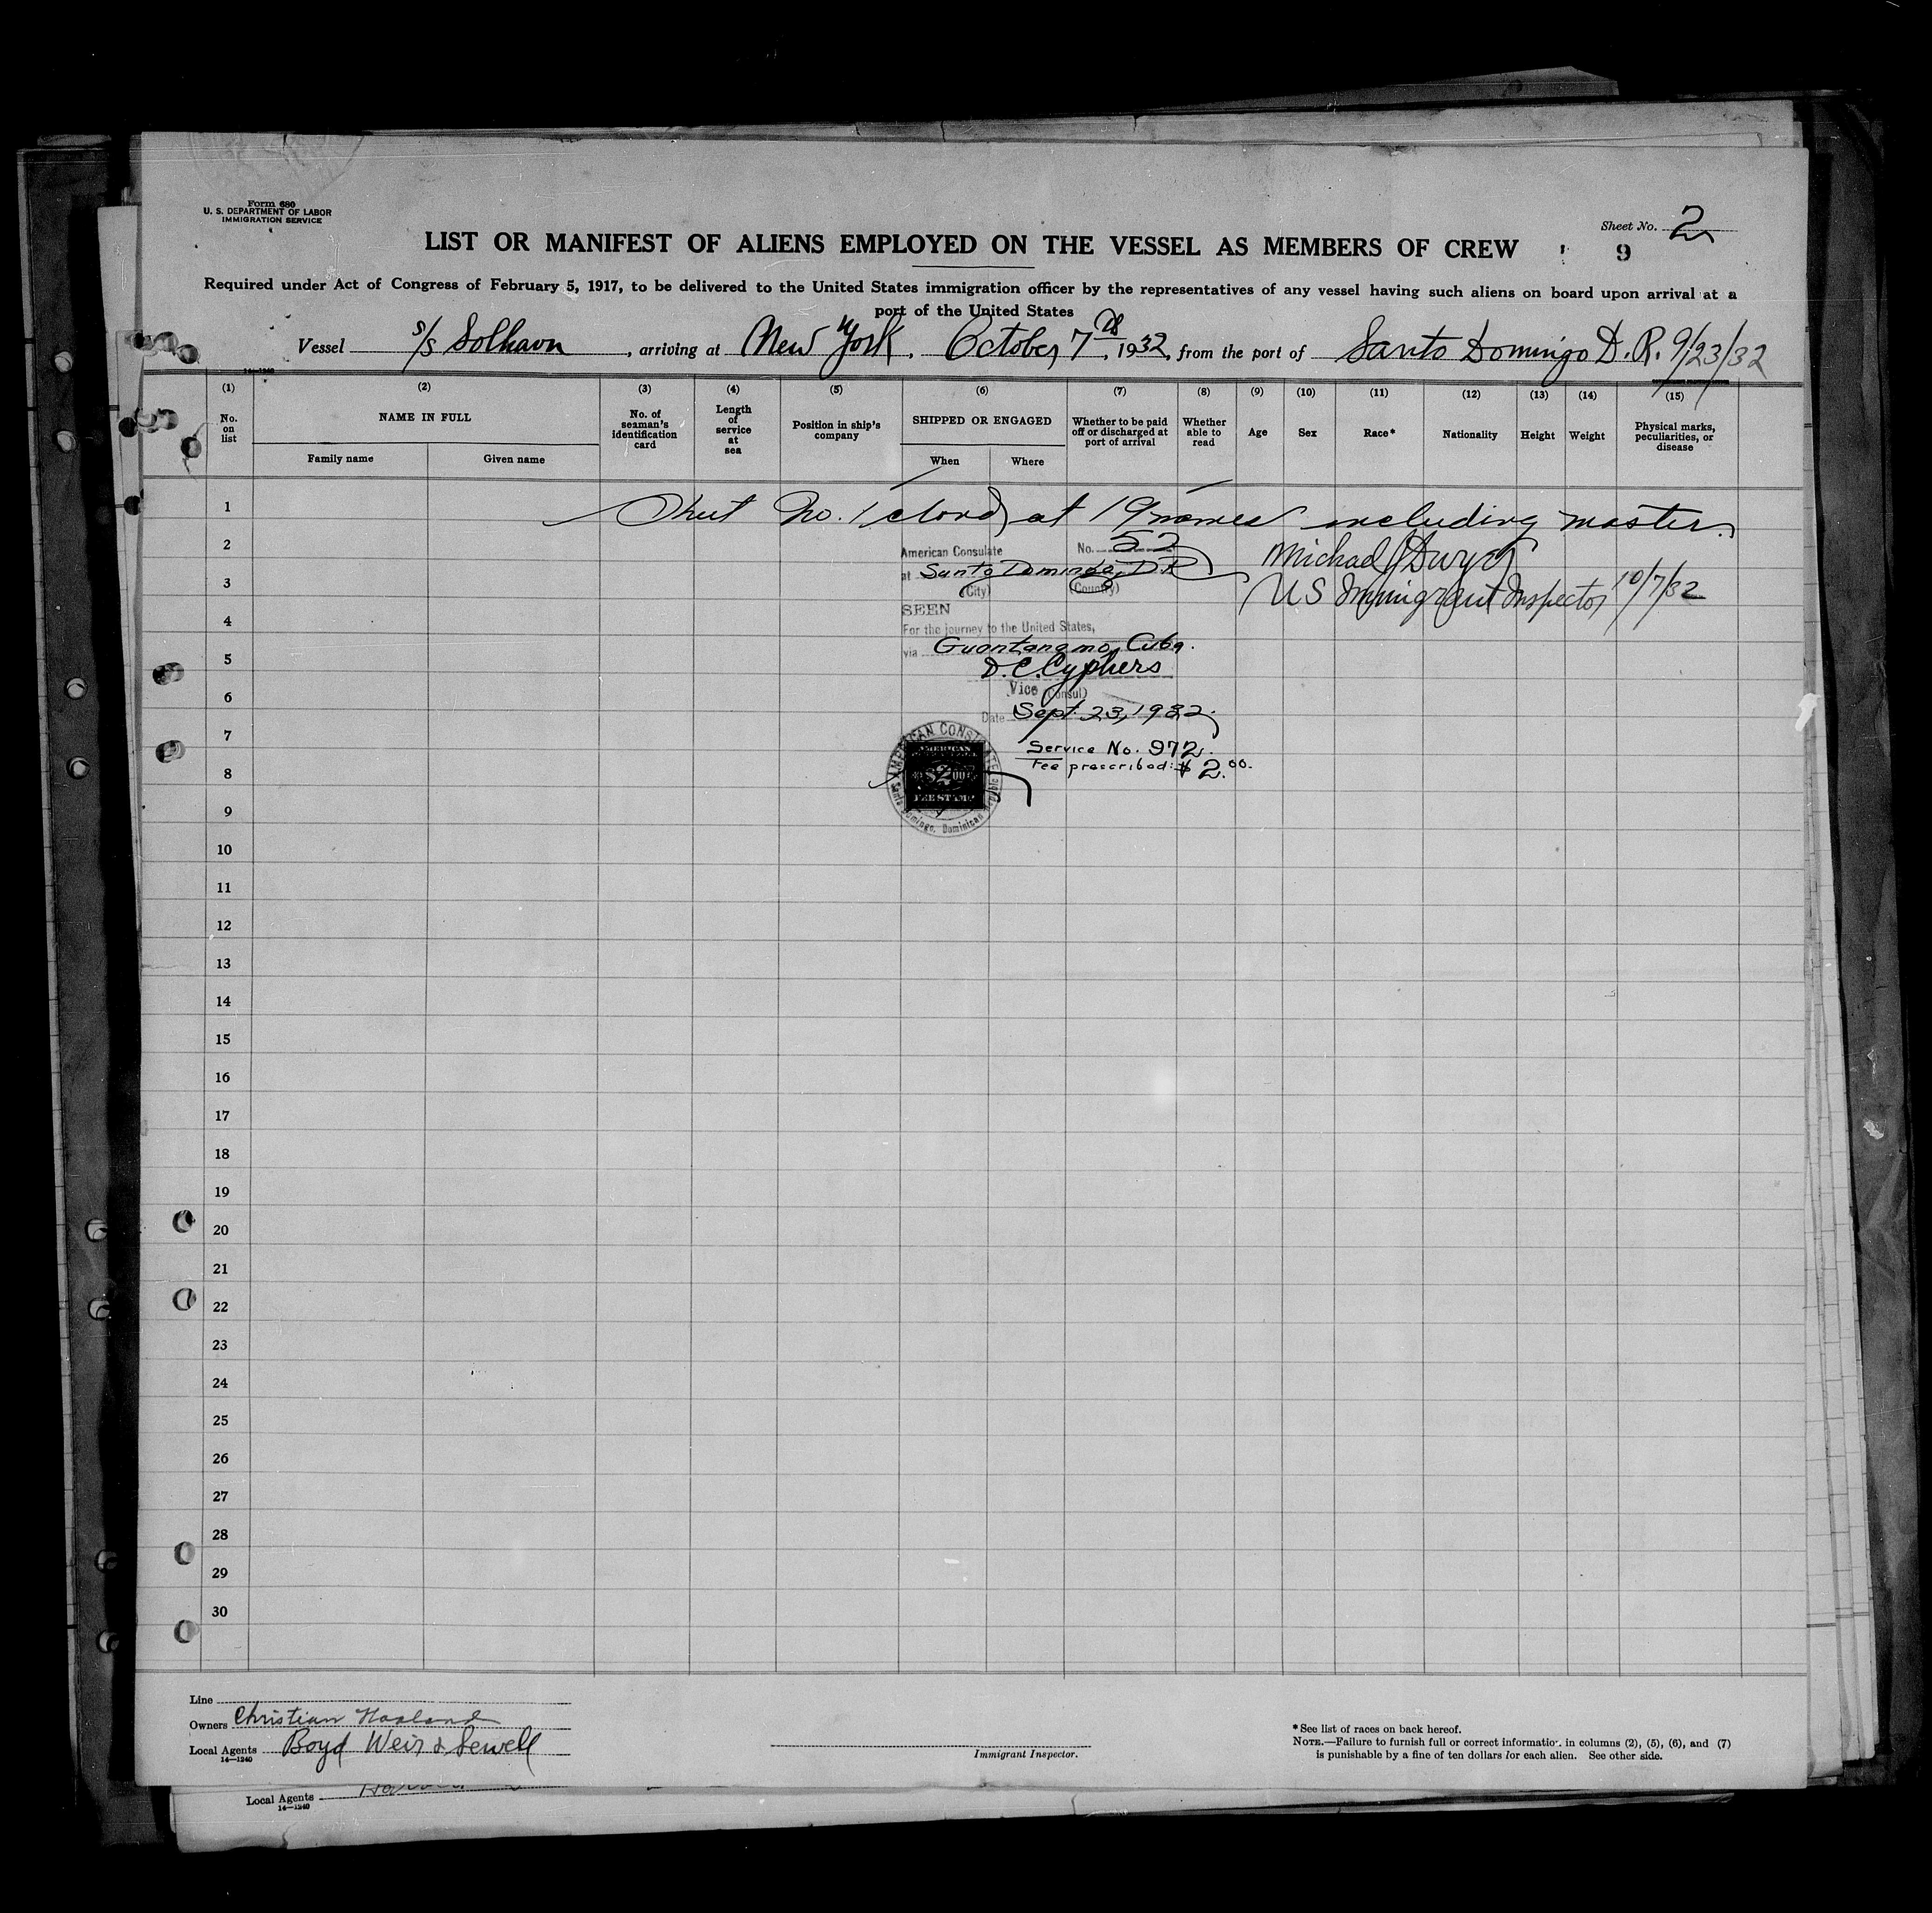 Form 680
U. S. DEPARTMENT OF LABOR
IMMIGRATION SERVICE
Sheet No. 2
LIST OR MANIFEST OF ALIENS EMPLOYED ON THE VESSEL AS MEMBERS OF CREW
9
Required under Act of Congress of February 5, 1917, to be delivered to the United States immigration officer by the representatives of any vessel having such aliens on board upon arrival at a
port of the United States
Vessel s/s Solhavn, arriving at New York. October 7th, 1932, from the port of Santo Domingo D.R. 9/23/32
14-1240
(1) (2) (3) (4) (5) (6) (7) (8) (9) (10) (11) (12) (13) (14) (15)
No. on list
NAME IN FULL
Family name
Given name
No. of seaman's identification card
Length of service at sea
Position in ship's company
SHIPPED OR ENGAGED
When
Where
Whether to be paid off or discharged at port of arrival
Whether able to read
Age
Sex
Race*
Nationality
Height
Weight
Physical marks, peculiarities, or disease
1 Sheet No. 1 closed at 19 names including master.
2
American Consulate No. 52
at Santo Domingo, D.R.
(City) (Country)
Michael
US Immigrant Inspector 10/7/32
3
SEEN
4
For the journey to the United States,
via Guantanamo, Cuba.
5
D.C. Cyphers
Vice (Consul)
6
Date Sept. 23, 1932.
7
Service No. 972.
Fee prescribed: $2.00.
AMERICAN CONSULATE
AMERICAN
$2.00
FEE STAMP
Santo Domingo, Dominican
8
9
10
11
12
13
14
15
16
17
18
19
20
21
22
23
24
25
26
27
28
29
30
Line
Owners Christian Haaland
Local Agents Boyd Weir & Sewell
14-1240
Immigrant Inspector.
*See list of races on back hereof.
NOTE.—Failure to furnish full or correct information in columns (2), (5), (6), and (7)
is punishable by a fine of ten dollars for each alien. See other side.
Local Agents
14-1240